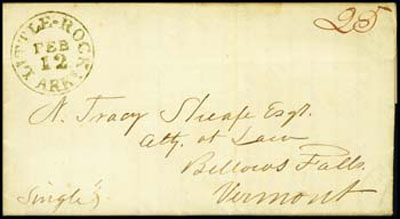 25
LITTLE-ROCK
FEB
12
ARK.
N. Tracy Sheafe Esqr.
Atty. at Law
Bellows Falls.
Vermont
Single